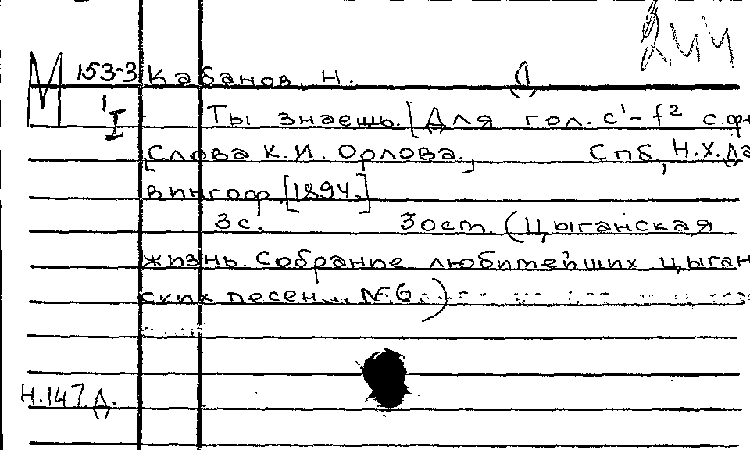 244
М 153-3 Кабанов, Н. Д
I Ты знаешь. [Для гол. c¹-f² с.фн
[Слова К.И. Орлова.] Спб, Н.Х.Да
вингоф [1894.]
3с. 30 ст. (Цыганская
жизнь. Собрание любимейших цыган
ских песен... №6.)
Н.147.Д.